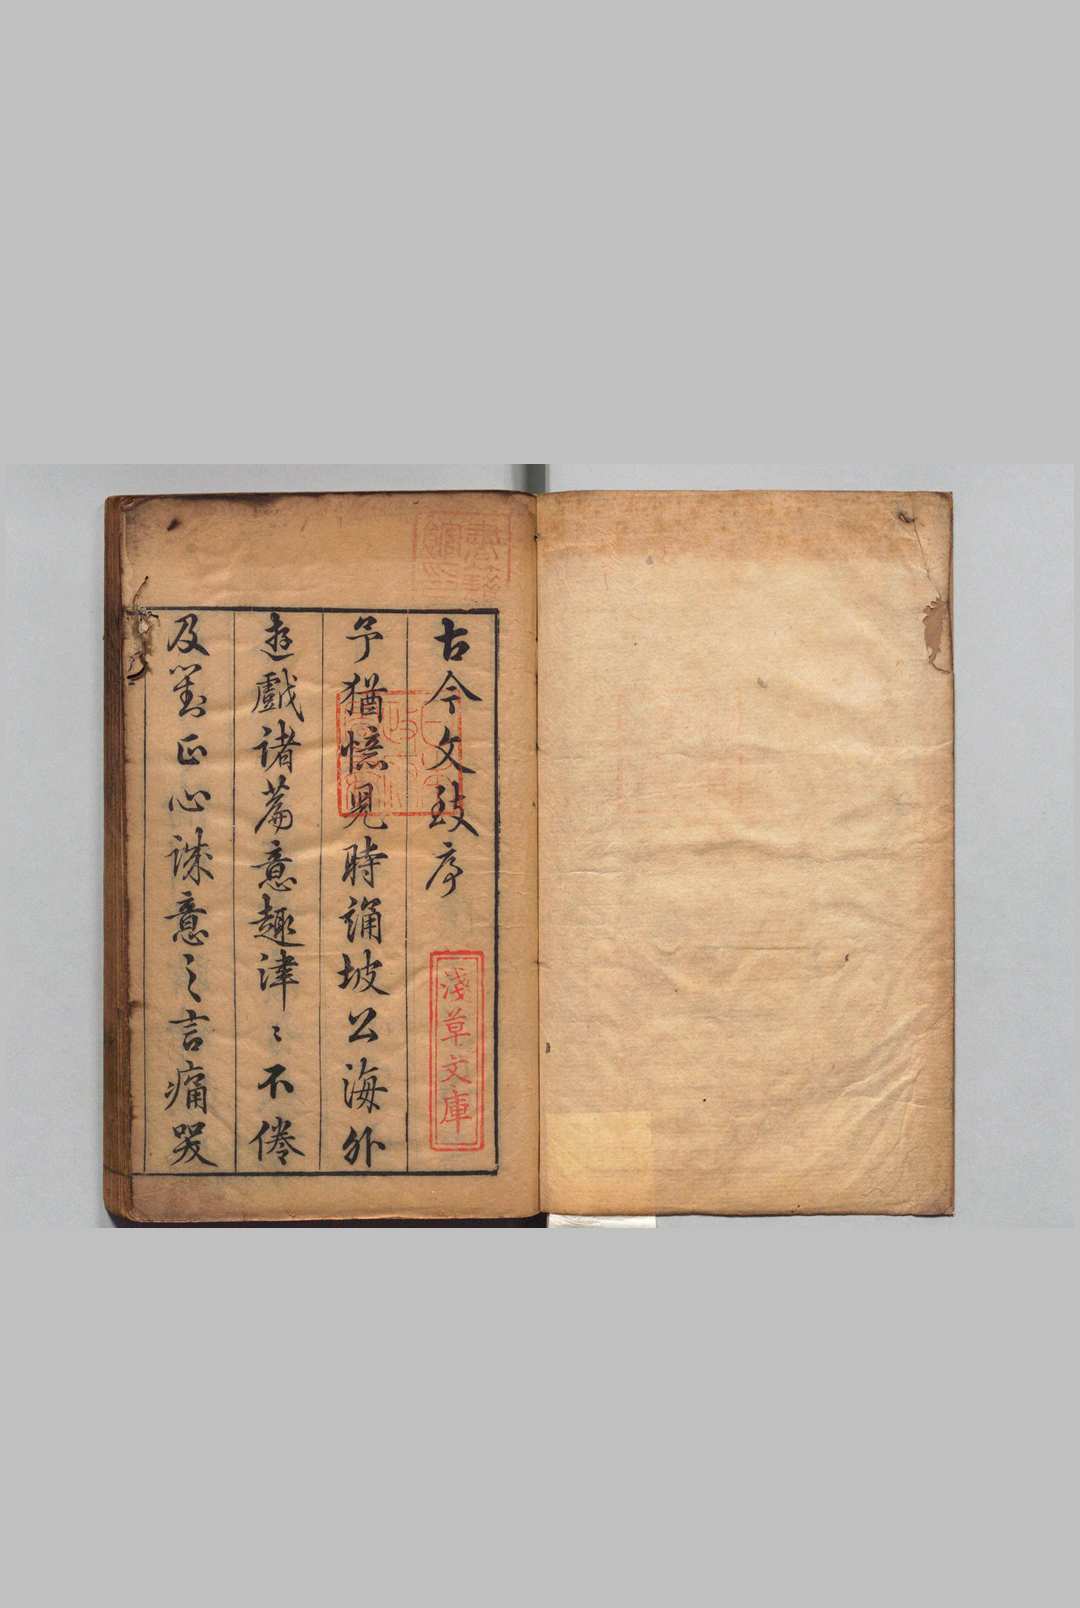 古今文致序
淺草文庫
予猶憶兒時誦坡公海外
遊戲諸篇意趣津〻不倦
及對正心誅意之言痛哭